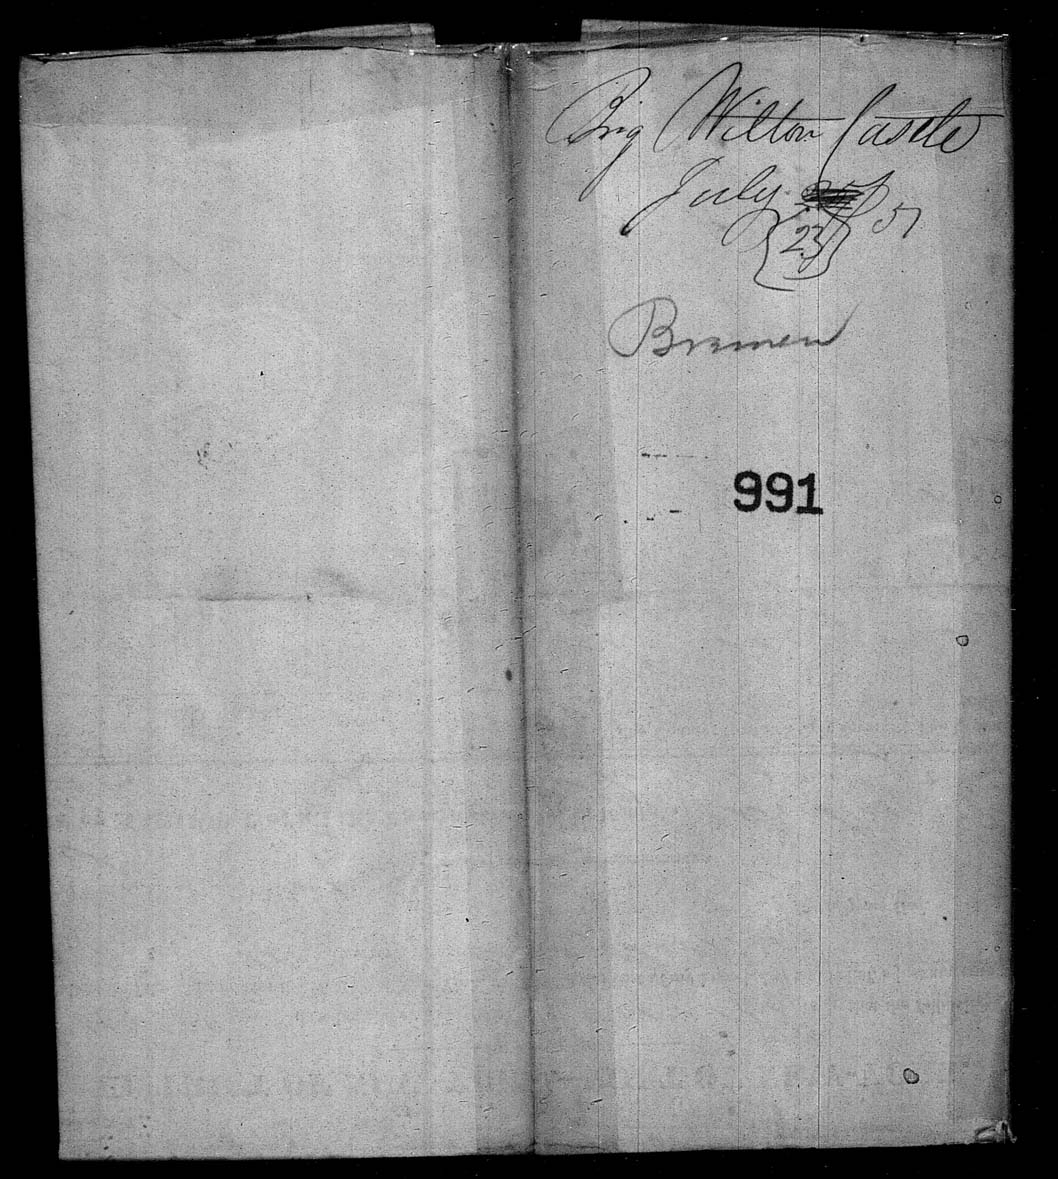 Brig Wilton Castle
July 51
23
Bremen
991